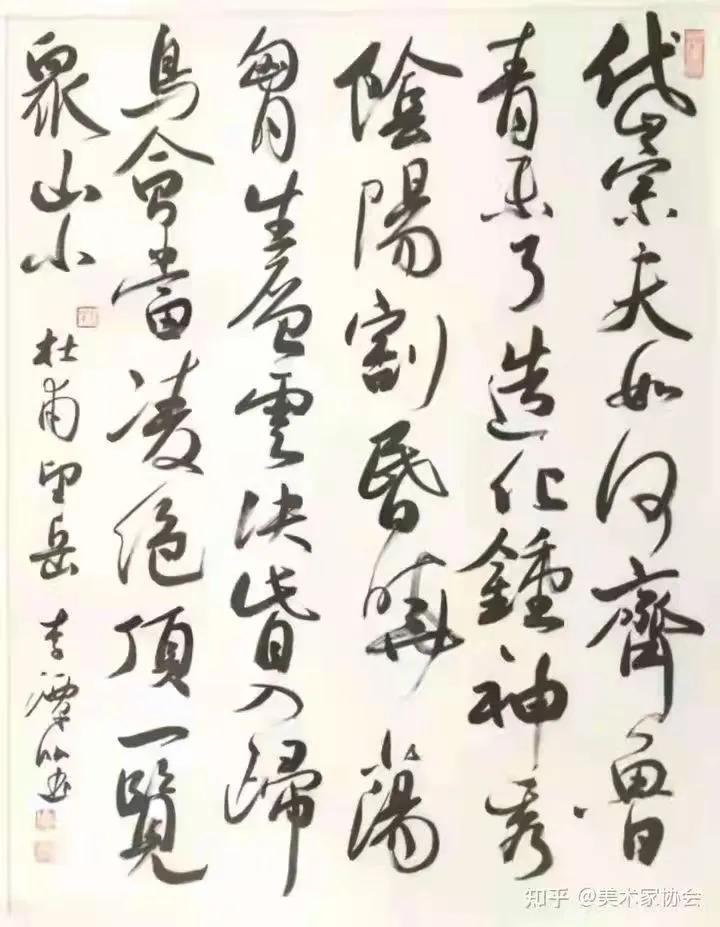 岱宗夫如何齊魯
青未了造化鍾神秀
陰陽割昏曉蕩
胷生層雲決眥入歸
鳥會當凌絕頂一覽
眾山小
杜甫望岳 李
知乎 @美术家协会